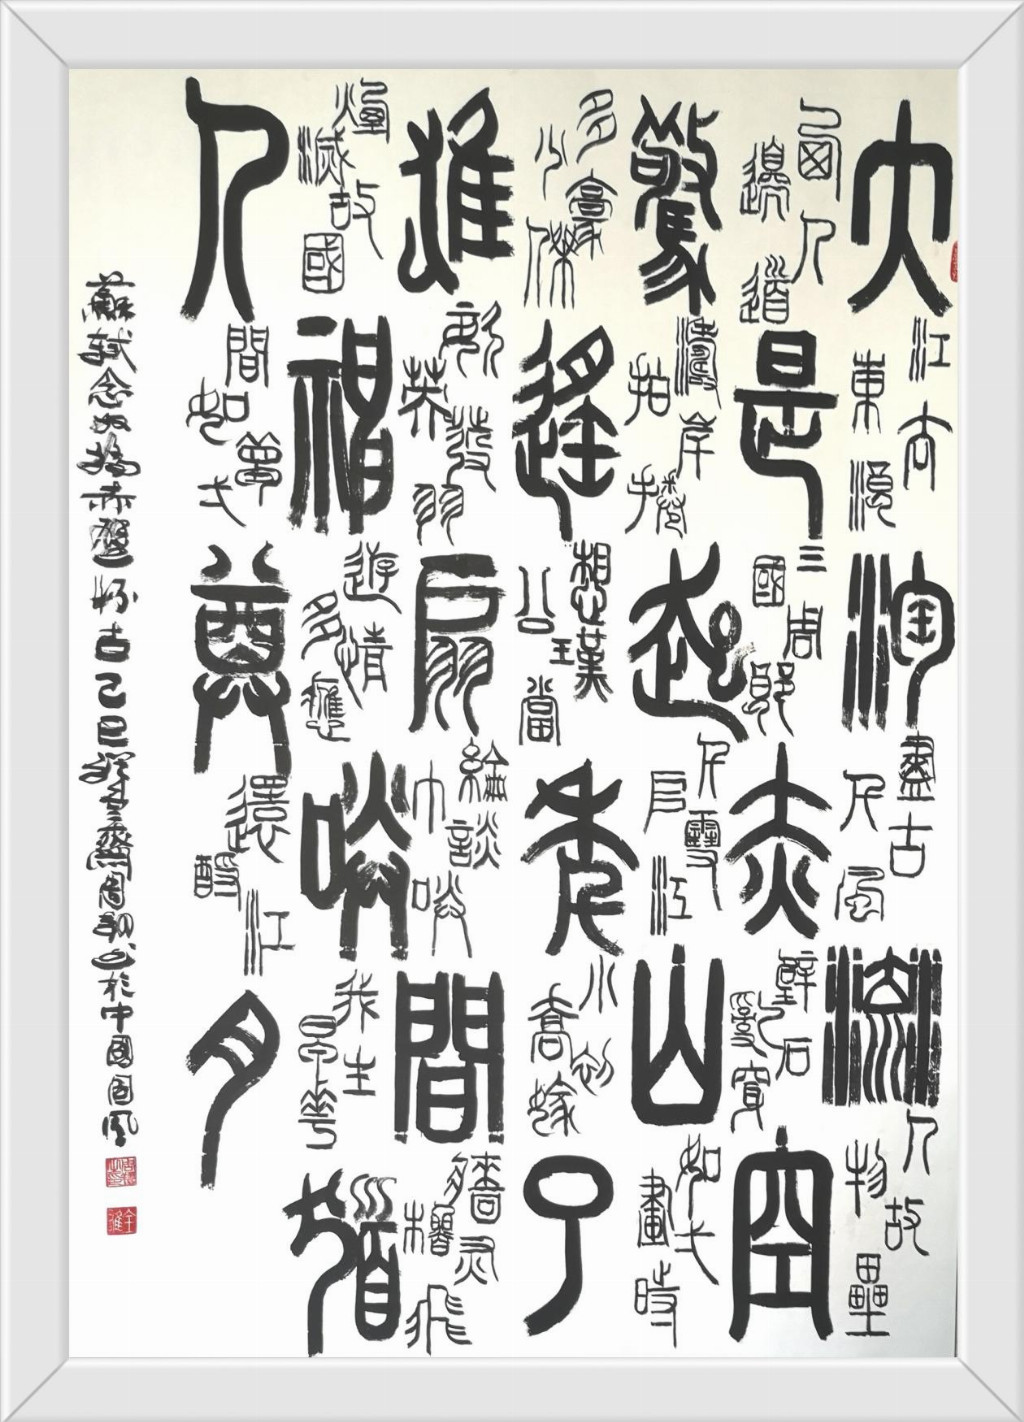 大江東去浪淘盡千古風流人物故壘
西邊人道是三國周郎赤壁亂石穿空
驚濤拍岸捲起千堆雪江山如畫弌時
多少豪傑遙想公瑾當年小喬初嫁了
雄姿英發羽扇綸巾談笑間檣櫓灰飛
煙滅故國神遊多情應笑我早生華髮
人間如夢弌尊還酹江月
蘇軾念奴嬌赤壁懷古己巳齋周於中國國風